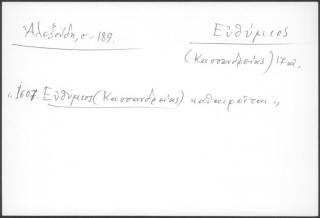 Ἀλεξούδη, σ. 189.
Εὐθύμιος
(Κασσανδρείας) 17 αἰ.
"1607. Εὐθύμιος (Κασσανδρείας) καθαιρεῖται"